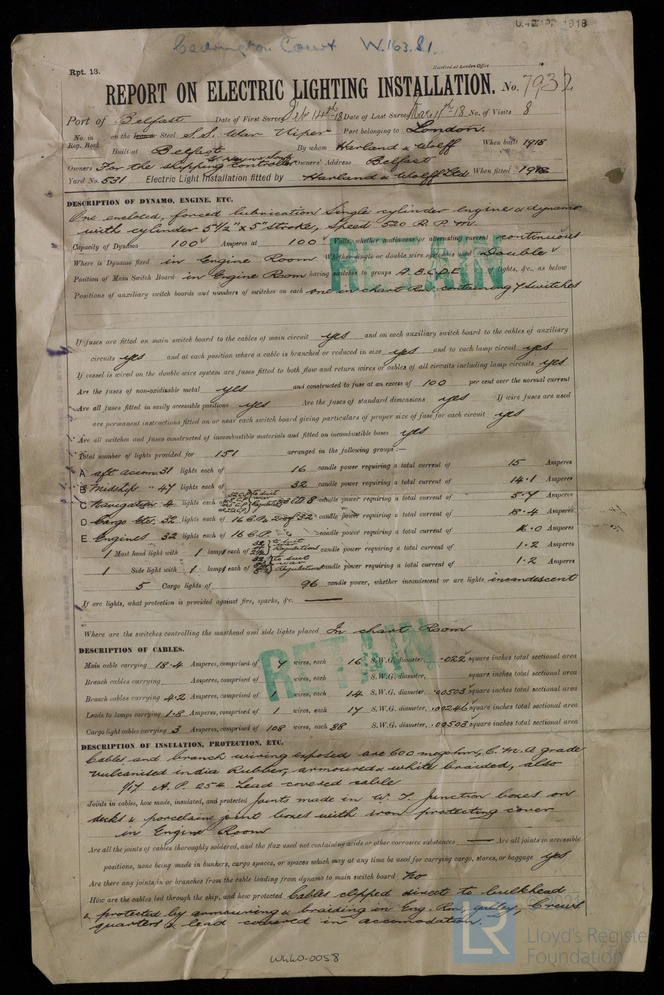 Cedrington Court W.163.81.
Rpt. 13.
REPORT ON ELECTRIC LIGHTING INSTALLATION. No. 7932
Port of Belfast Date of First Survey Sep 14th-18 Date of Last Survey No. of Visits 8
No. in Reg. Book on the Iron Steel S.S. War Viper Port belonging to London.
Built at Belfast By whom Harland & Wolff When built 1918
Owners For the Shipping Controller Owners' Address Belfast
Yard No. 531 Electric Light Installation fitted by Harland & Wolff Ltd When fitted 1918
DESCRIPTION OF DYNAMO, ENGINE, ETC.
One enclosed, forced lubrication Single cylinder engine & dynamo
with cylinder 5½" x 5" stroke, speed 520 R.P.M.
Capacity of Dynamo 100 Amperes at 100 Volts, whether continuous or alternating current continuous
Where is Dynamo fixed in Engine Room Whether single or double wire system is used Double
Position of Main Switch Board in Engine Room having switches to groups A.B.C.D.E. of lights, &c., as below
Positions of auxiliary switch boards and numbers of switches on each one in chart Rm. containing 7 switches
RETAIN
If fuses are fitted on main switch board to the cables of main circuit yes and on each auxiliary switch board to the cables of auxiliary
circuits yes and at each position where a cable is branched or reduced in size yes and to each lamp circuit yes
If vessel is wired on the double wire system are fuses fitted to both flow and return wires or cables of all circuits including lamp circuits yes
Are the fuses of non-oxidizable metal yes and constructed to fuse at an excess of 100 per cent over the normal current
Are all fuses fitted in easily accessible positions yes Are the fuses of standard dimensions yes If wire fuses are used
are permanent instructions fitted on or near each switch board giving particulars of proper size of fuse for each circuit yes
Are all switches and fuses constructed of incombustible materials and fitted on incombustible bases yes
Total number of lights provided for 151 arranged in the following groups:—
A aft accom 31 lights each of 16 candle power requiring a total current of 15 Amperes
B Midship 47 lights each of 32 candle power requiring a total current of 14.1 Amperes
C Navigation 4 lights each of candle power requiring a total current of 5.7 Amperes
D Cargo Etc. 32 lights each of 16 C.P. 32 candle power requiring a total current of 18.4 Amperes
E Engines 32 lights each of 16 C.P. candle power requiring a total current of Amperes
1 Mast head light with 1 lamps each of candle power requiring a total current of 1.2 Amperes
1 Side light with 1 lamps each of candle power requiring a total current of 1.2 Amperes
5 Cargo lights of 96 candle power, whether incandescent or arc lights incandescent
If arc lights, what protection is provided against fire, sparks, &c. —
Where are the switches controlling the masthead and side lights placed In chart Room
RETAIN
DESCRIPTION OF CABLES.
Main cable carrying 18.4 Amperes, comprised of 7 wires, each 16 S.W.G. diameter, .022 square inches total sectional area
Branch cables carrying Amperes, comprised of wires, each S.W.G. diameter, square inches total sectional area
Branch cables carrying 4.2 Amperes, comprised of 1 wires, each 14 S.W.G. diameter, .00503 square inches total sectional area
Leads to lamps carrying 1.8 Amperes, comprised of 1 wires, each 17 S.W.G. diameter, .00246 square inches total sectional area
Cargo light cables carrying 3 Amperes, comprised of 108 wires, each 38 S.W.G. diameter, .00503 square inches total sectional area
DESCRIPTION OF INSULATION, PROTECTION, ETC.
Cables and branch wiring exposed are 600 megohm, C.M.A. grade
vulcanised india Rubber, armoured & white braided, also
Lead covered cable
Joints in cables, how made, insulated, and protected Joints made in W.T. Junction boxes on
decks & porcelain joint boxes with iron protecting cover
in Engine Room
Are all the joints of cables thoroughly soldered, and the flux used not containing acids or other corrosive substances — Are all joints in accessible
positions, none being made in bunkers, cargo spaces, or spaces which may at any time be used for carrying cargo, stores, or baggage yes
Are there any joints in or branches from the cable leading from dynamo to main switch board No
How are the cables led through the ship, and how protected Cables clipped direct to bulkhead
& protected by armouring & braiding in Eng. Rm, galley, Crews
quarters & lead covered in accomodation.
W440-0058
LR Lloyd's Register
Foundation